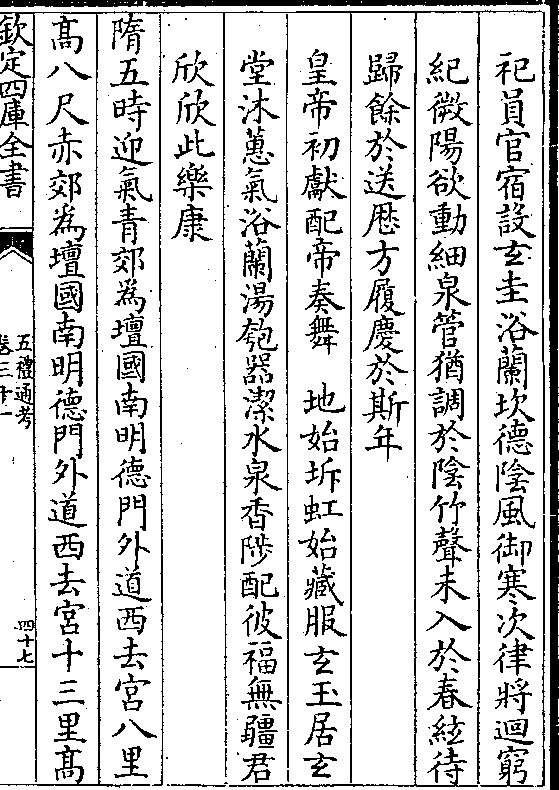 祀員官宿設玄圭浴蘭坎德陰風御寒次律將迴窮
紀微陽欲動細泉管猶調於陰竹聲未入於春絃待
歸餘於送厯方履慶於斯年
皇帝初獻配帝奏舞　地始坼虹始藏服玄玉居玄
堂沐蕙氣浴蘭湯匏器潔水泉香陟配彼福無疆君
欣欣此樂康
隋五時迎氣青郊為壇國南明德門外道西去宮八里
髙八尺赤郊為壇國南明德門外道西去宮十三里髙
欽定四庫全書
五禮通考
卷三十一
四十七